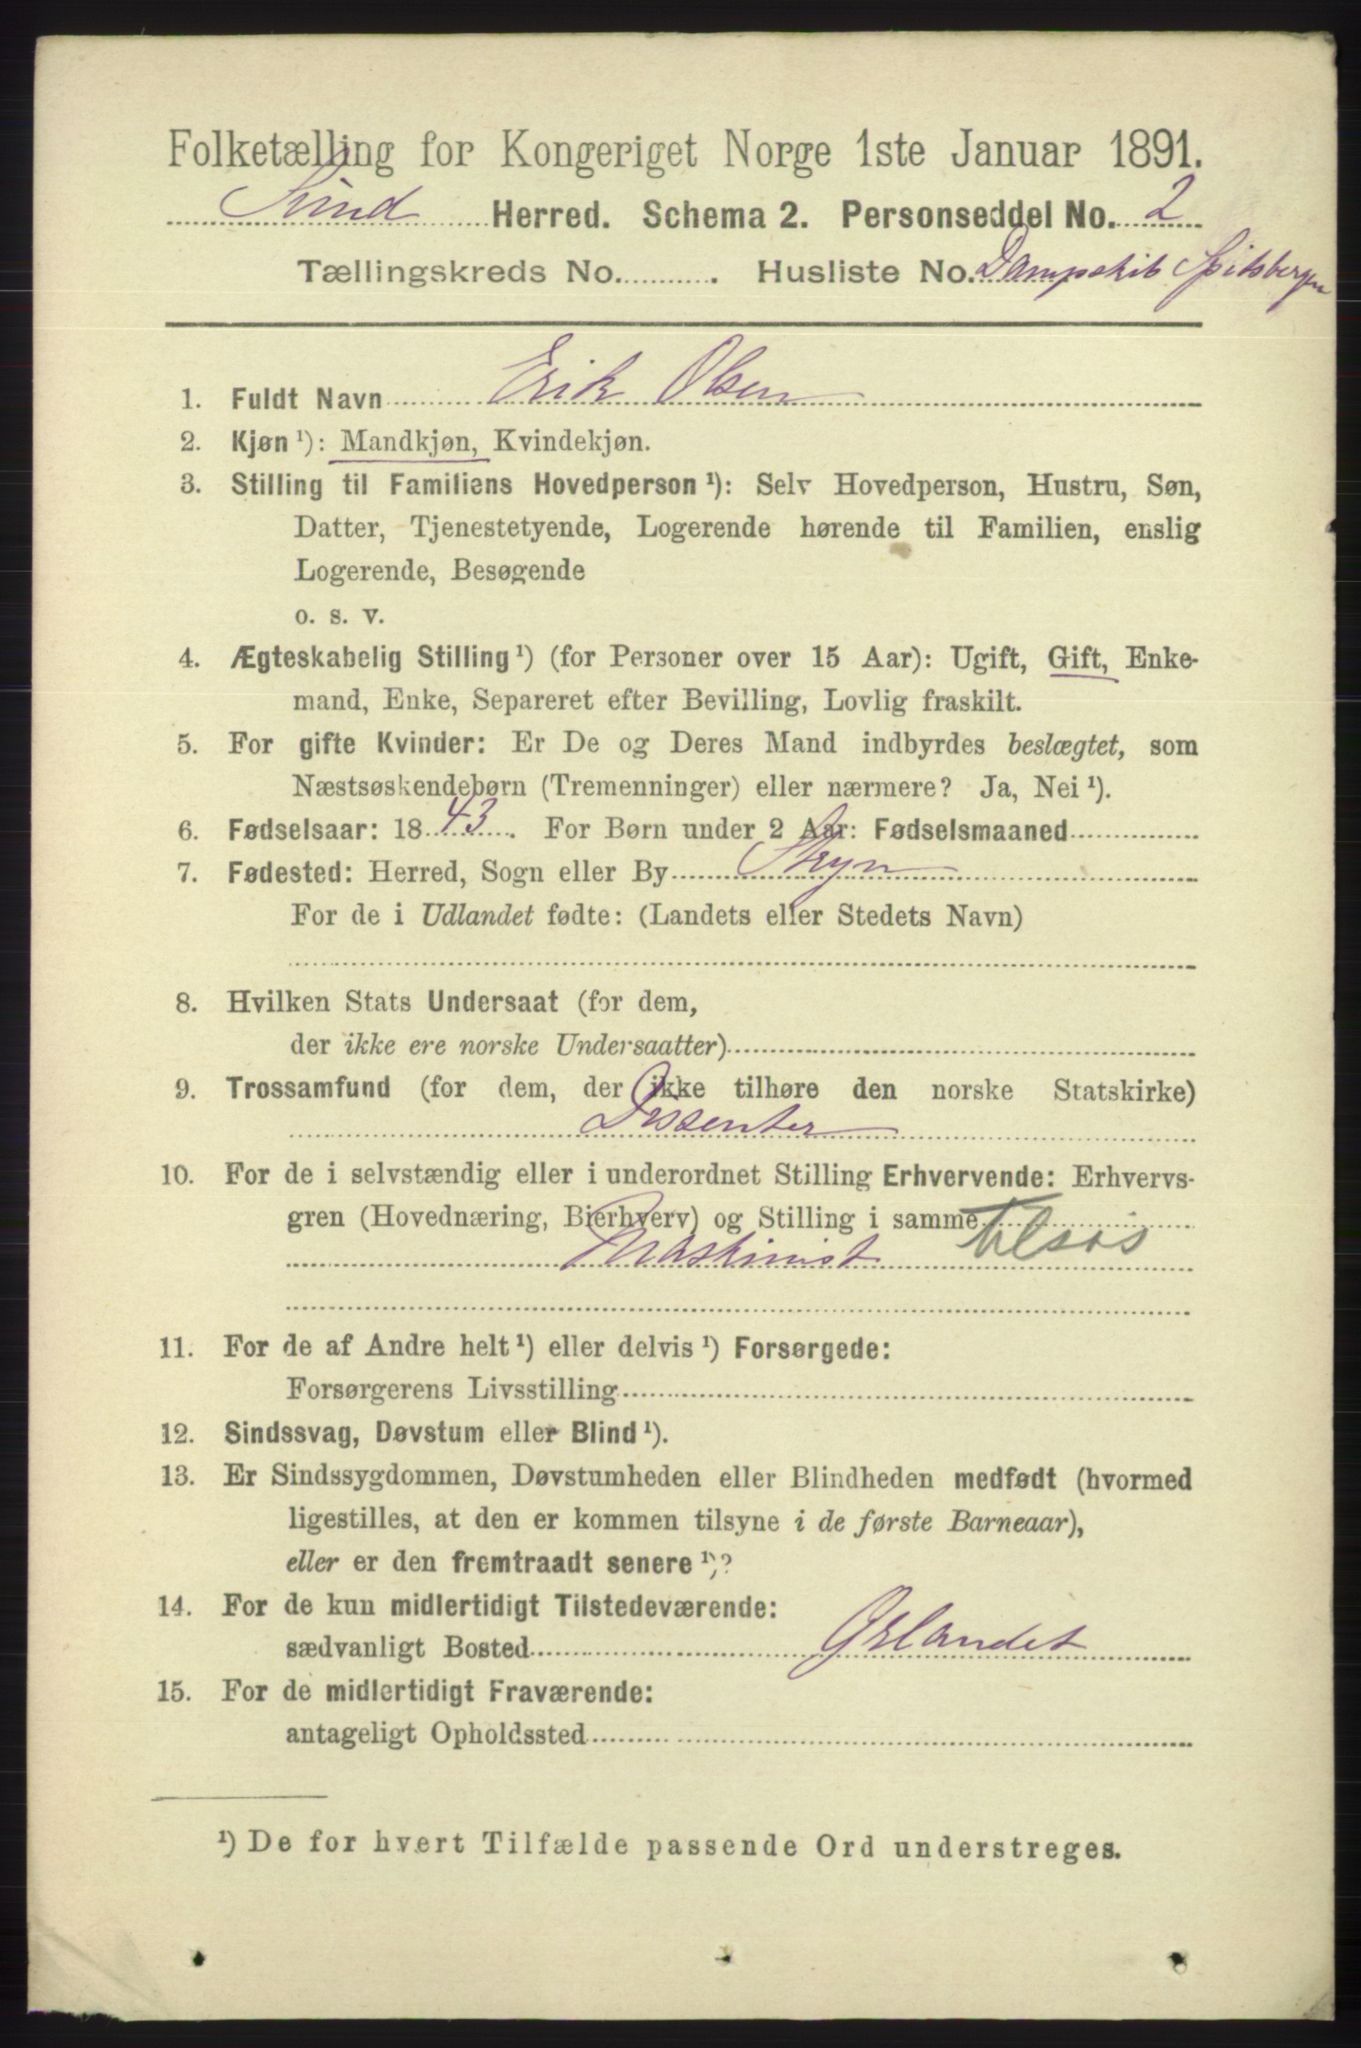 Folketælling for Kongeriget Norge 1ste Januar 1891.
Sund Herred. Schema 2. Personseddel No. 2
Tællingskreds No. Husliste No. Dampskib Spitsbergen
1. Fuldt Navn Erik Olsen
2. Kjøn ¹): Mandkjøn, Kvindekjøn.
3. Stilling til Familiens Hovedperson ¹): Selv Hovedperson, Hustru, Søn,
Datter, Tjenestetyende, Logerende hørende til Familien, enslig
Logerende, Besøgende
o. s. v.
4. Ægteskabelig Stilling ¹) (for Personer over 15 Aar): Ugift, Gift, Enke-
mand, Enke, Separeret efter Bevilling, Lovlig fraskilt.
5. For gifte Kvinder: Er De og Deres Mand indbyrdes beslægtet, som
Næstsøskendebørn (Tremenninger) eller nærmere? Ja, Nei ¹).
6. Fødselsaar: 1843. For Børn under 2 Aar: Fødselsmaaned
7. Fødested: Herred, Sogn eller By Stryn
For de i Udlandet fødte: (Landets eller Stedets Navn)
8. Hvilken Stats Undersaat (for dem,
der ikke ere norske Undersaatter)
9. Trossamfund (for dem, der ikke tilhøre den norske Statskirke)
Dissenter
10. For de i selvstændig eller i underordnet Stilling Erhvervende: Erhvervs-
gren (Hovednæring, Bierhverv) og Stilling i samme
Maskinist tilsøs
11. For de af Andre helt ¹) eller delvis ¹) Forsørgede:
Forsørgerens Livsstilling
12. Sindssvag, Døvstum eller Blind ¹).
13. Er Sindssygdommen, Døvstumheden eller Blindheden medfødt (hvormed
ligestilles, at den er kommen tilsyne i de første Barneaar),
eller er den fremtraadt senere ¹)?
14. For de kun midlertidigt Tilstedeværende:
sædvanligt Bosted Ørlandet
15. For de midlertidigt Fraværende:
antageligt Opholdssted
¹) De for hvert Tilfælde passende Ord understreges.